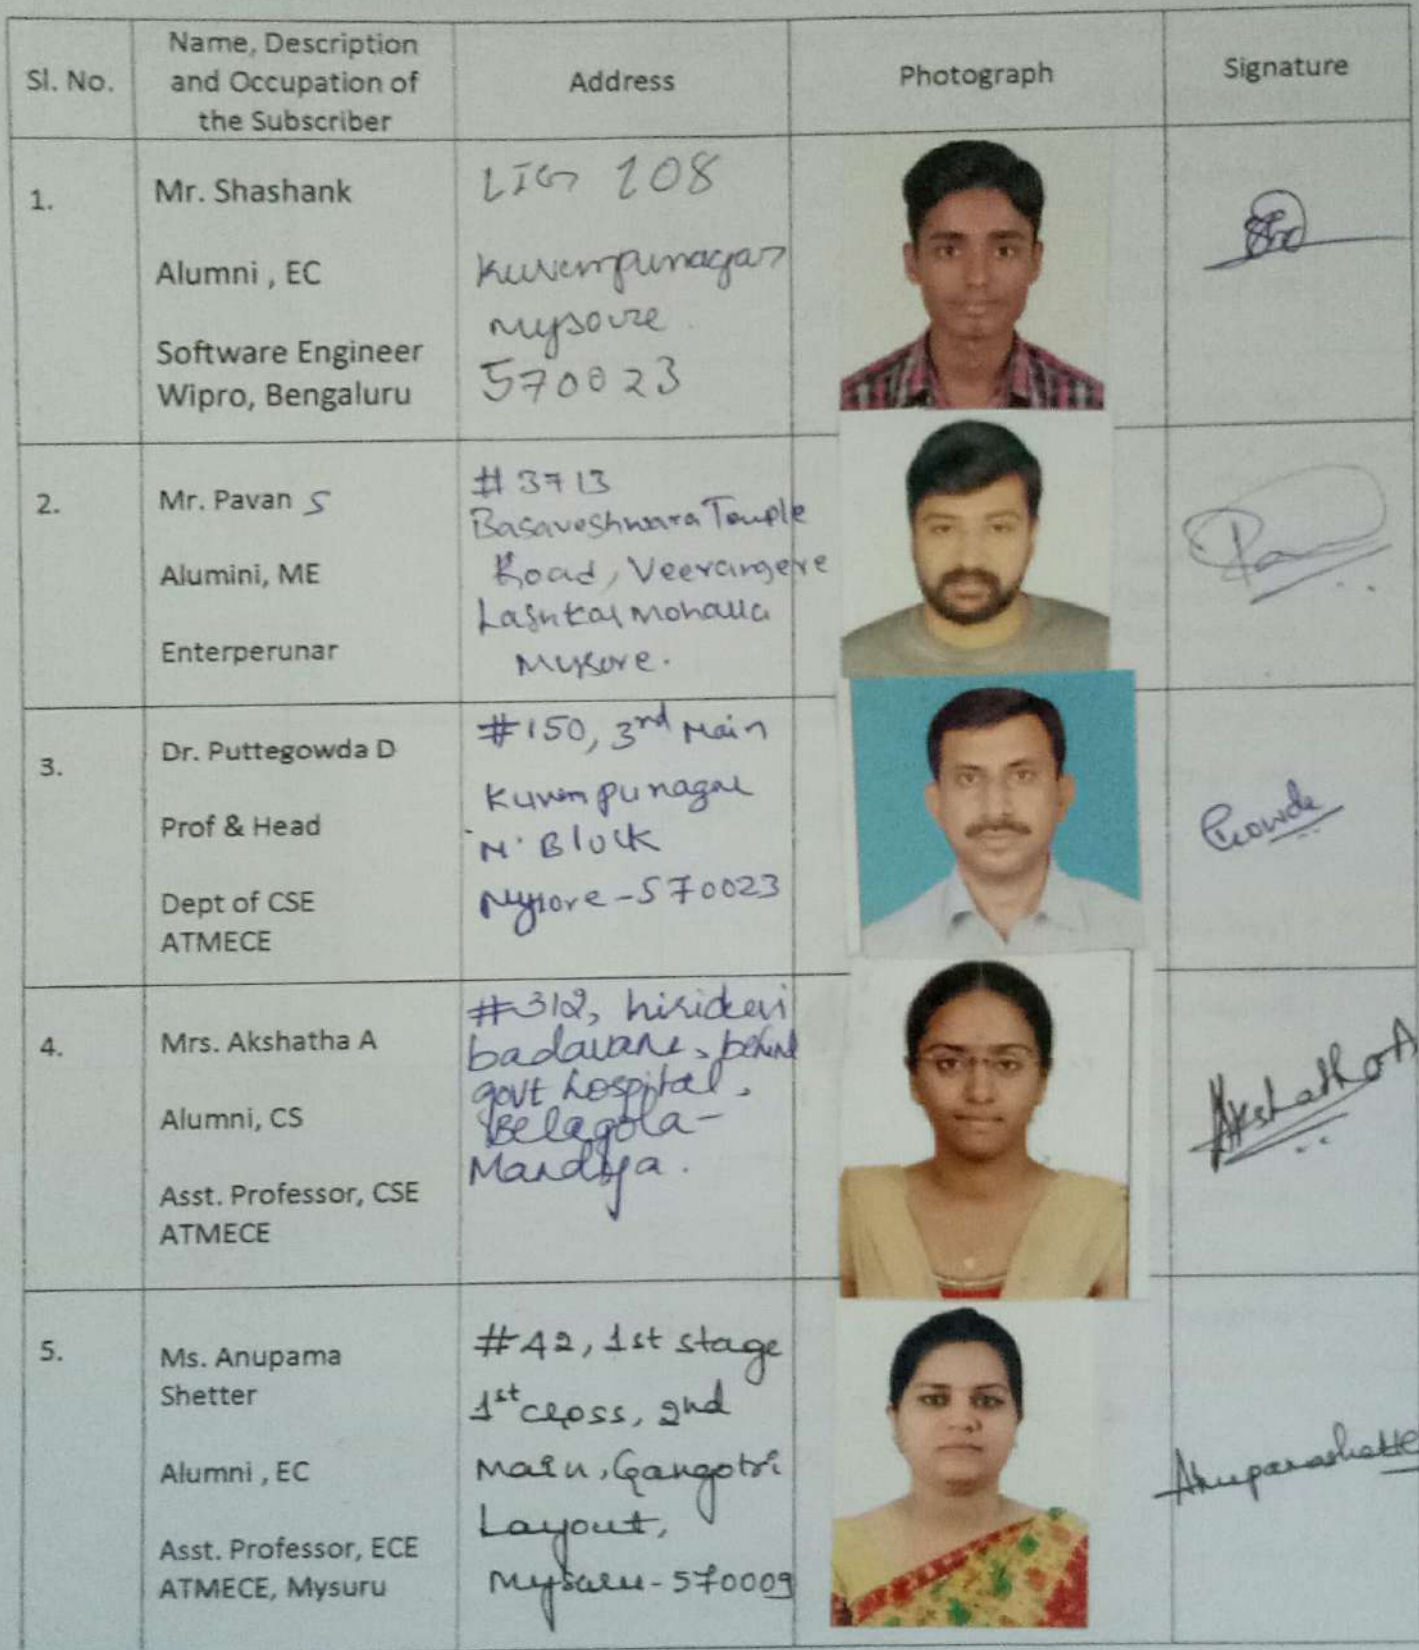 Sl. No.
Name, Description
and Occupation of
the Subscriber
Address
Photograph
Signature
1.
Mr. Shashank
Alumni , EC
Software Engineer
Wipro, Bengaluru
LIG 108
Kuvempunagar
mysore
570023
2.
Mr. Pavan S
Alumini, ME
Enterperunar
#3713
Basaveshwara Temple
Road, Veerangere
Lashkar Mohalla
Mysore.
3.
Dr. Puttegowda D
Prof & Head
Dept of CSE
ATMECE
#150, 3rd Main
Kuvempunagar
M Block
Mysore-570023
Gowda
4.
Mrs. Akshatha A
Alumni, CS
Asst. Professor, CSE
ATMECE
#312, hiridevi
badavane, behind
govt hospital,
Belagola-
Mandya.
Akshatha A
5.
Ms. Anupama
Shetter
Alumni , EC
Asst. Professor, ECE
ATMECE, Mysuru
#42, 1st stage
1st cross, 2nd
Main, Gangotri
Layout,
Mysuru-570009